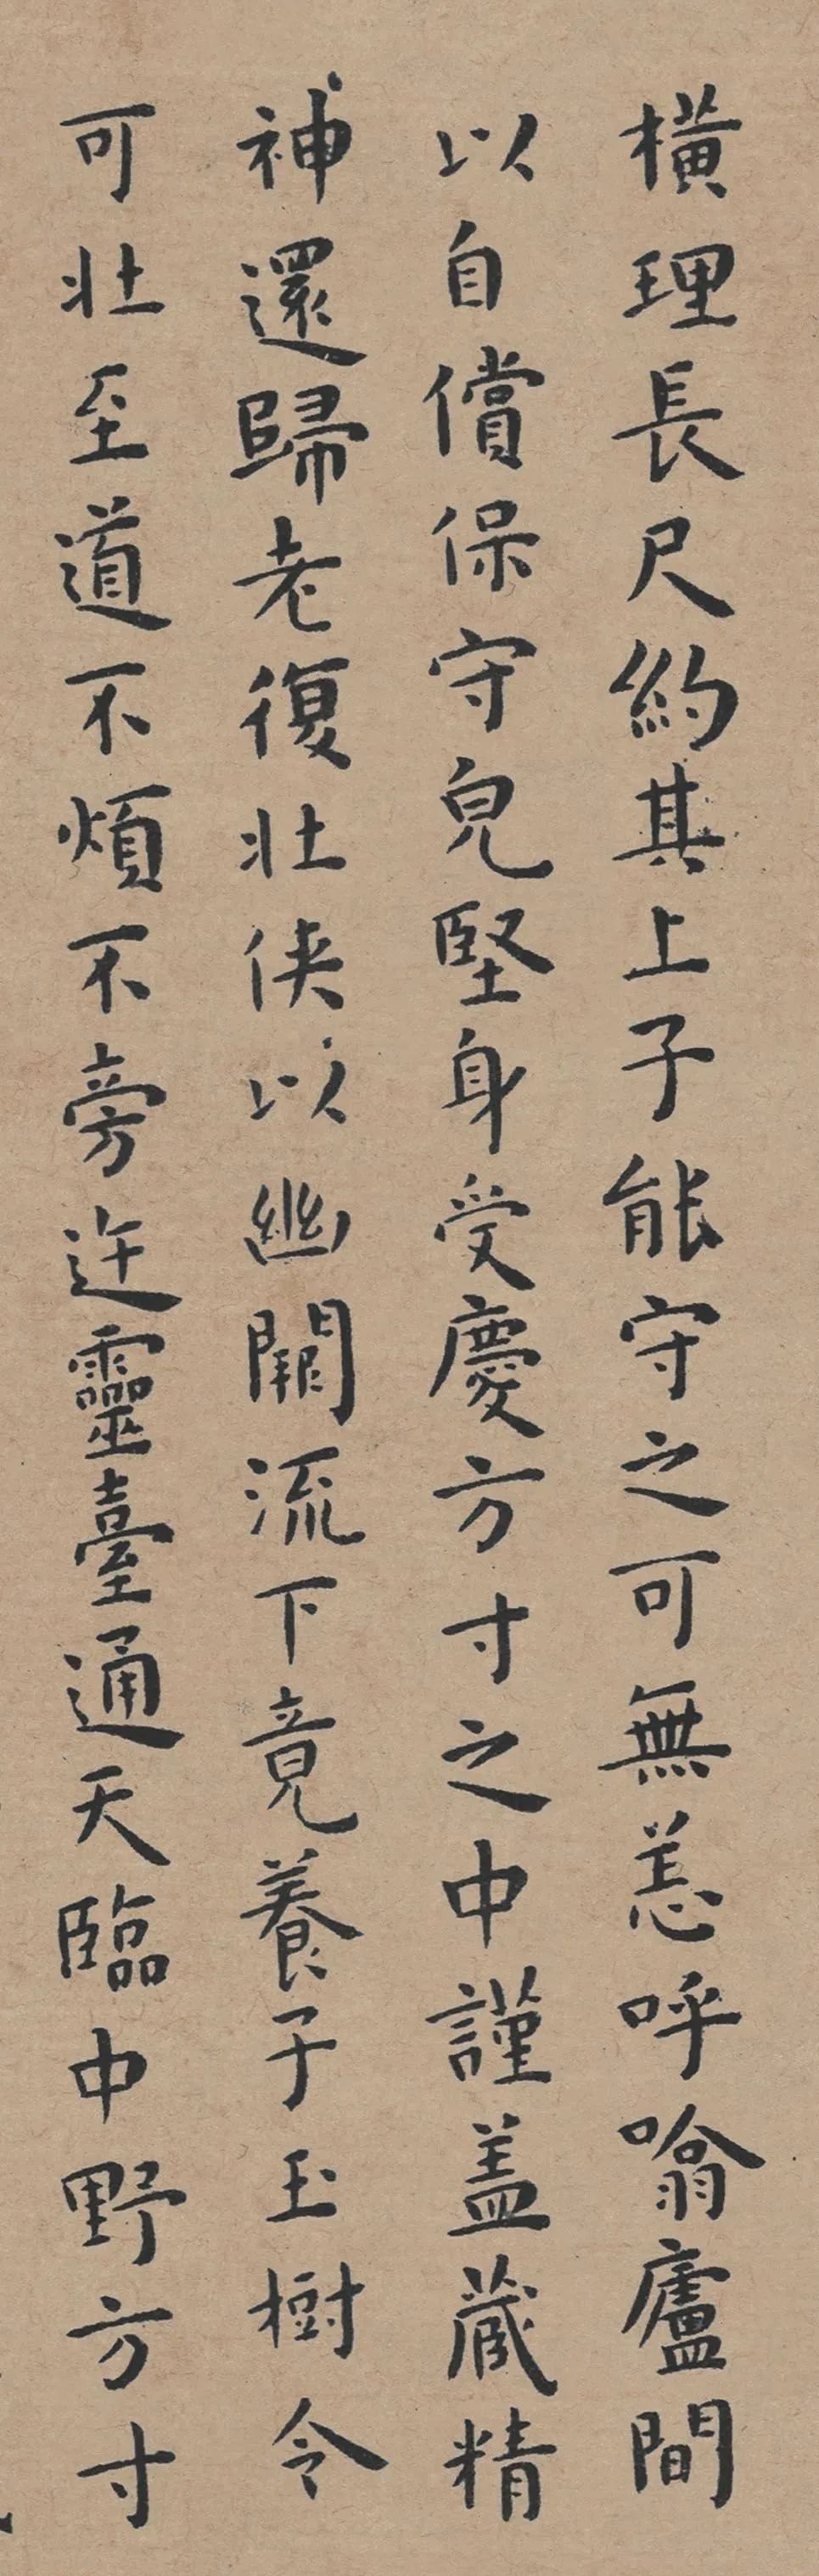 橫理長尺約其上子能守之可無恙呼噏廬間
以自償保守皃堅身受慶方寸之中謹盖藏精
神還歸老復壯侠以幽闕流下竟養子玉樹令
可壯至道不煩不旁迕靈臺通天臨中野方寸